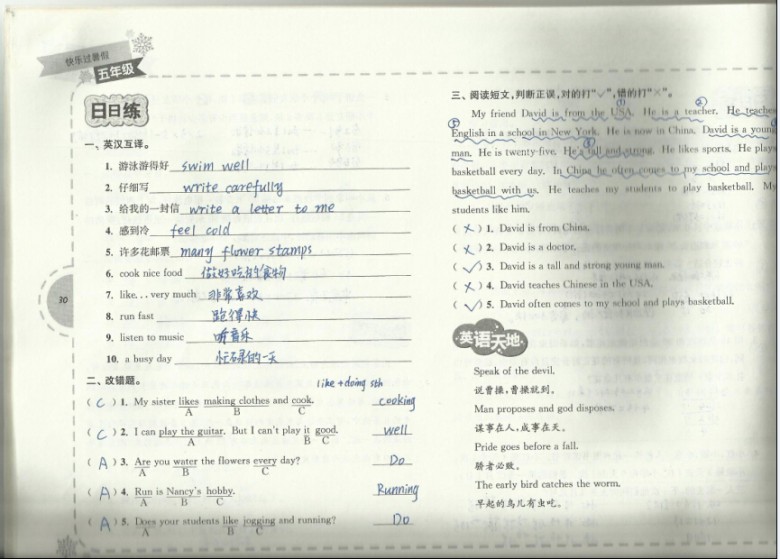 快乐过暑假
五年级
日日练
一、英汉互译。
1. 游泳游得好 swim well
2. 仔细写 write carefully
3. 给我的一封信 write a letter to me
4. 感到冷 feel cold
5. 许多花邮票 many flower stamps
6. cook nice food 做好吃的食物
7. like...very much 非常喜欢
8. run fast 跑得快
9. listen to music 听音乐
10. a busy day 忙碌的一天
30
二、改错题。
like+doing sth
( C ) 1. My sister likes making clothes and cook. cooking
A B C
( C ) 2. I can play the guitar. But I can't play it good. well
A B C
( A ) 3. Are you water the flowers every day? Do
A B C
( A ) 4. Run is Nancy's hobby. Running
A B C
( A ) 5. Does your students like jogging and running? Do
A B C
三、阅读短文,判断正误,对的打“✓”,错的打“×”。
My friend David is from the USA. He is a teacher. He teaches
English in a school in New York. He is now in China. David is a young
man. He is twenty-five. He's tall and strong. He likes sports. He plays
basketball every day. In China he often comes to my school and plays
basketball with us. He teaches my students to play basketball. My
students like him.
( × ) 1. David is from China.
( × ) 2. David is a doctor.
( ✓ ) 3. David is a tall and strong young man.
( × ) 4. David teaches Chinese in the USA.
( ✓ ) 5. David often comes to my school and plays basketball.
英语天地
Speak of the devil.
说曹操,曹操就到。
Man proposes and god disposes.
谋事在人,成事在天。
Pride goes before a fall.
骄者必败。
The early bird catches the worm.
早起的鸟儿有虫吃。